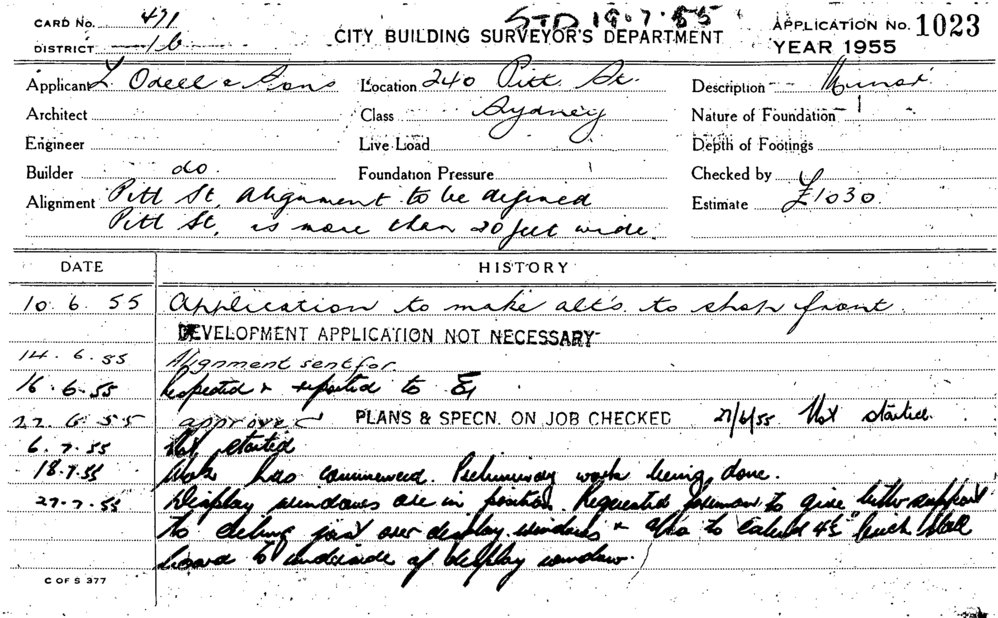 CARD No. 471
STD 19.7.55
APPLICATION No. 1023
DISTRICT 1b
CITY BUILDING SURVEYOR'S DEPARTMENT
YEAR 1955
Applicant L Odell & Sons Location 240 Pitt St. Description Minor
Architect Class Sydney Nature of Foundation
Engineer Live Load Depth of Footings
Builder do. Foundation Pressure Checked by
Alignment Pitt St, Alignment to be defined Estimate £1030
Pitt St, is more than 20 feet wide.
DATE HISTORY
10.6.55 Application to make alt's. to shop front.
DEVELOPMENT APPLICATION NOT NECESSARY
14.6.55 Alignment sent for.
16.6.55 Inspected & reported to
22.6.55 approved PLANS & SPECN. ON JOB CHECKED 27/6/55 Not started.
6.7.55 Not started
18.7.55 Work has commenced. Preliminary work being done.
27.7.55 Display windows are in position. Requested foreman to give better support
to ceiling joist over display windows & also to extend 4½" brick stall
board to underside of display window.
C OF S 377